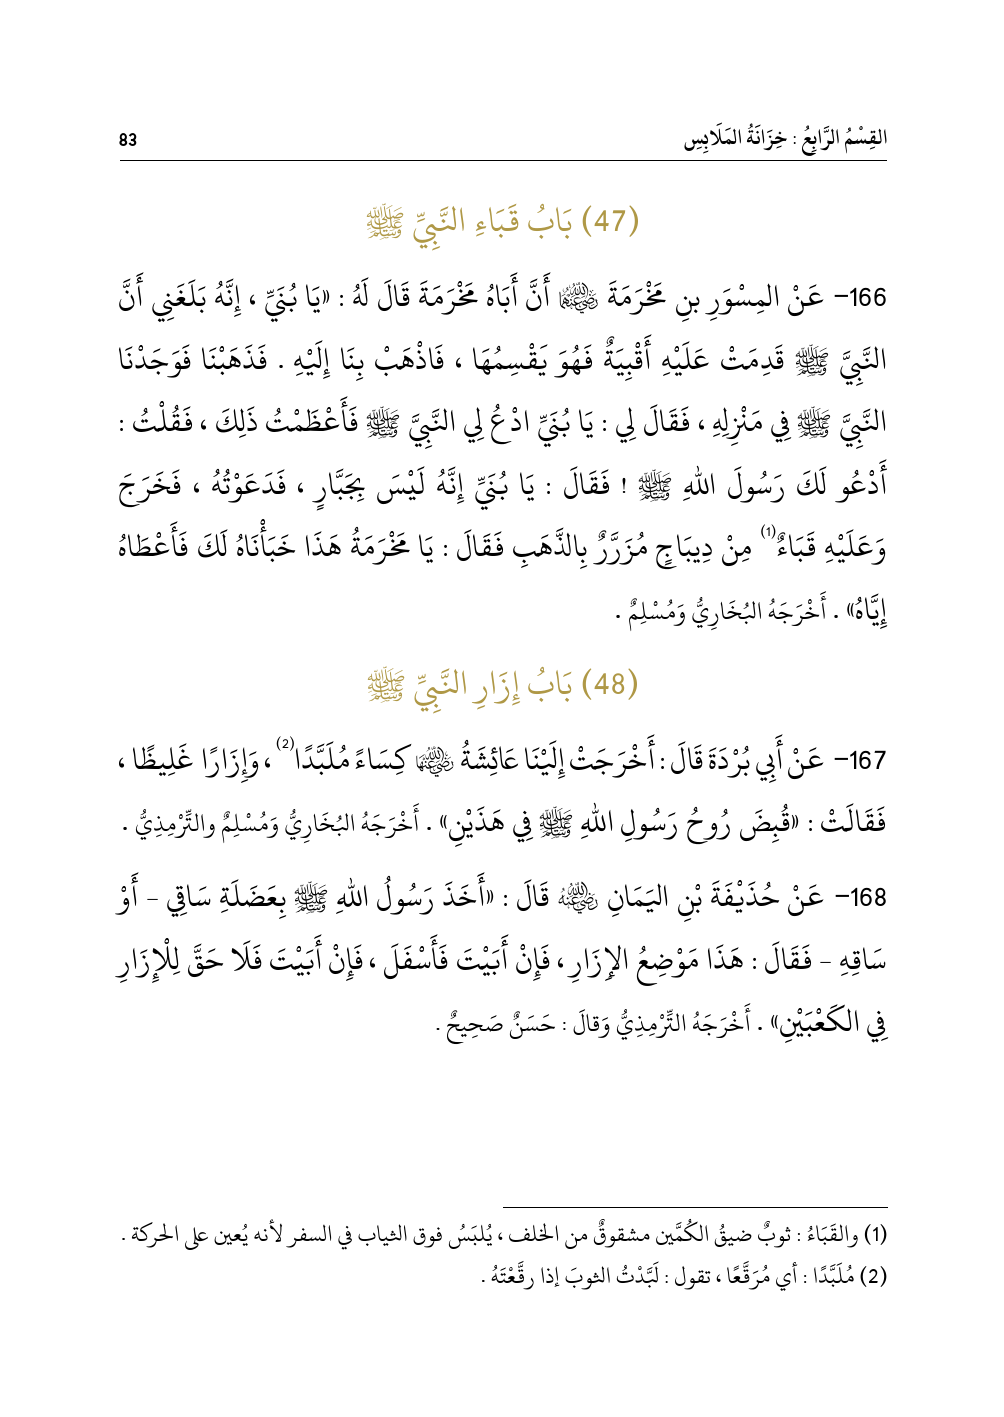 القِسْمُ الرَّابِعُ : خِزَانَةُ المَلَابِسِ 83
(47) بَابُ قَبَاءِ النَّبِيِّ ﷺ
166– عَنْ المِسْوَرِ بنِ مَخْرَمَةَ رضي الله عنهما أَنَّ أَبَاهُ مَخْرَمَةَ قَالَ لَهُ : «يَا بُنَيِّ ، إِنَّهُ بَلَغَنِي أَنَّ
النَّبِيَّ ﷺ قَدِمَتْ عَلَيْهِ أَقْبِيَةٌ فَهُوَ يَقْسِمُهَا ، فَاذْهَبْ بِنَا إِلَيْهِ . فَذَهَبْنَا فَوَجَدْنَا
النَّبِيَّ ﷺ فِي مَنْزِلِهِ ، فَقَالَ لِي : يَا بُنَيِّ ادْعُ لِي النَّبِيَّ ﷺ فَأَعْظَمْتُ ذَلِكَ ، فَقُلْتُ :
أَدْعُو لَكَ رَسُولَ اللهِ ﷺ ! فَقَالَ : يَا بُنَيِّ إِنَّهُ لَيْسَ بِجَبَّارٍ ، فَدَعَوْتُهُ ، فَخَرَجَ
وَعَلَيْهِ قَبَاءٌ(1) مِنْ دِيبَاجٍ مُزَرَّرٌ بِالذَّهَبِ فَقَالَ : يَا مَخْرَمَةُ هَذَا خَبَأْنَاهُ لَكَ فَأَعْطَاهُ
إِيَّاهُ» . أَخْرَجَهُ البُخَارِيُّ وَمُسْلِمٌ .
(48) بَابُ إِزَارِ النَّبِيِّ ﷺ
167– عَنْ أَبِي بُرْدَةَ قَالَ : أَخْرَجَتْ إِلَيْنَا عَائِشَةُ رضي الله عنها كِسَاءً مُلَبَّدًا(2) ، وَإِزَارًا غَلِيظًا ،
فَقَالَتْ : «قُبِضَ رُوحُ رَسُولِ اللهِ ﷺ فِي هَذَيْنِ» . أَخْرَجَهُ البُخَارِيُّ وَمُسْلِمٌ والتِّرْمِذِيُّ .
168– عَنْ حُذَيْفَةَ بْنِ اليَمَانِ رضي الله عنه قَالَ : «أَخَذَ رَسُولُ اللهِ ﷺ بِعَضَلَةِ سَاقِي – أَوْ
سَاقِهِ – فَقَالَ : هَذَا مَوْضِعُ الإِزَارِ ، فَإِنْ أَبَيْتَ فَأَسْفَلَ ، فَإِنْ أَبَيْتَ فَلَا حَقَّ لِلْإِزَارِ
فِي الكَعْبَيْنِ» . أَخْرَجَهُ التِّرْمِذِيُّ وَقالَ : حَسَنٌ صَحِيحٌ .
(1) والقَبَاءُ : ثوبٌ ضيقُ الكُمَّين مشقوقٌ من الخلف ، يُلبَسُ فوق الثياب في السفر لأنه يُعين على الحركة .
(2) مُلَبَّدًا : أي مُرَقَّعًا ، تقول : لَبَّدْتُ الثوبَ إذا رقَّعْتَهُ .